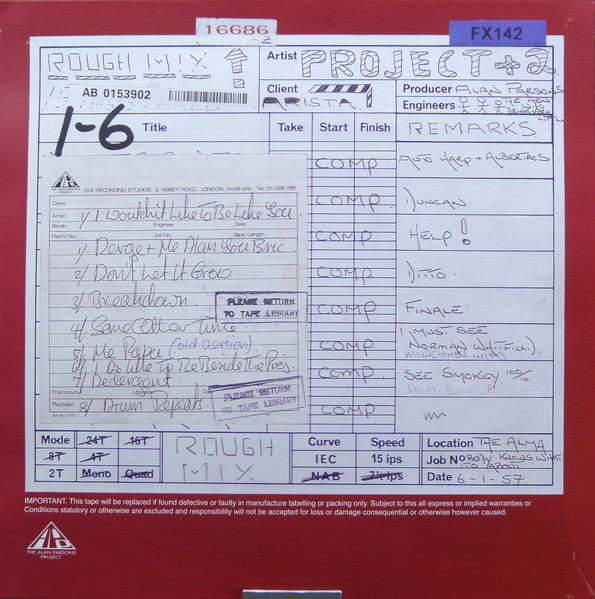 16686
FX142
ROUGH MIX
Artist PROJECT + 2
AB 0153902
Client ARISTA
Producer ALAN PARSONS
Engineers
1-6
Title Take Start Finish REMARKS
COMP AUTO HARP + ALBETROS
COMP DUNCAN.
COMP HELP!
COMP DITTO.
COMP FINALE.
COMP I MUST SEE. NORMAN WHITFIELD).
COMP SEE SMOKEY 100/10
COMP
EMI RECORDING STUDIOS, 3, ABBEY ROAD, LONDON, NW8 9AY. Tel: 01-286 1161
Client
Artist 1/ I Wouldn't Like To Be Like You.
Studio Engineer Date
Matrix No. Job No. Tape Length
1/. Derge + Me Alan You Bric
2/ Don't Let It Grow
3/ Breakdown
PLEASE RETURN
TO TAPE LIBRARY
4/ Some Other Time
5/ Me Paper (old version)
6/ I Do Like To Be Beside The Prog.
7/ Dederegont
This copy by Location
PLEASE RETURN
TO TAPE LIBRARY
Playback 8/ Drum Repeats
Mode 24T 16T
8T 4T
2T Mono Quad
ROUGH MIX
Curve Speed
IEC 15 ips
NAB 7½ ips
Location THE ALMA
Job NOBODY KNOWS WHAT ITS ABOUT
Date 6-1-57
IMPORTANT. This tape will be replaced if found defective or faulty in manufacture labelling or packing only. Subject to this all express or implied warranties or
Conditions statutory or otherwise are excluded and responsibility will not be accepted for loss or damage consequential or otherwise however caused.
THE ALAN PARSONS
PROJECT